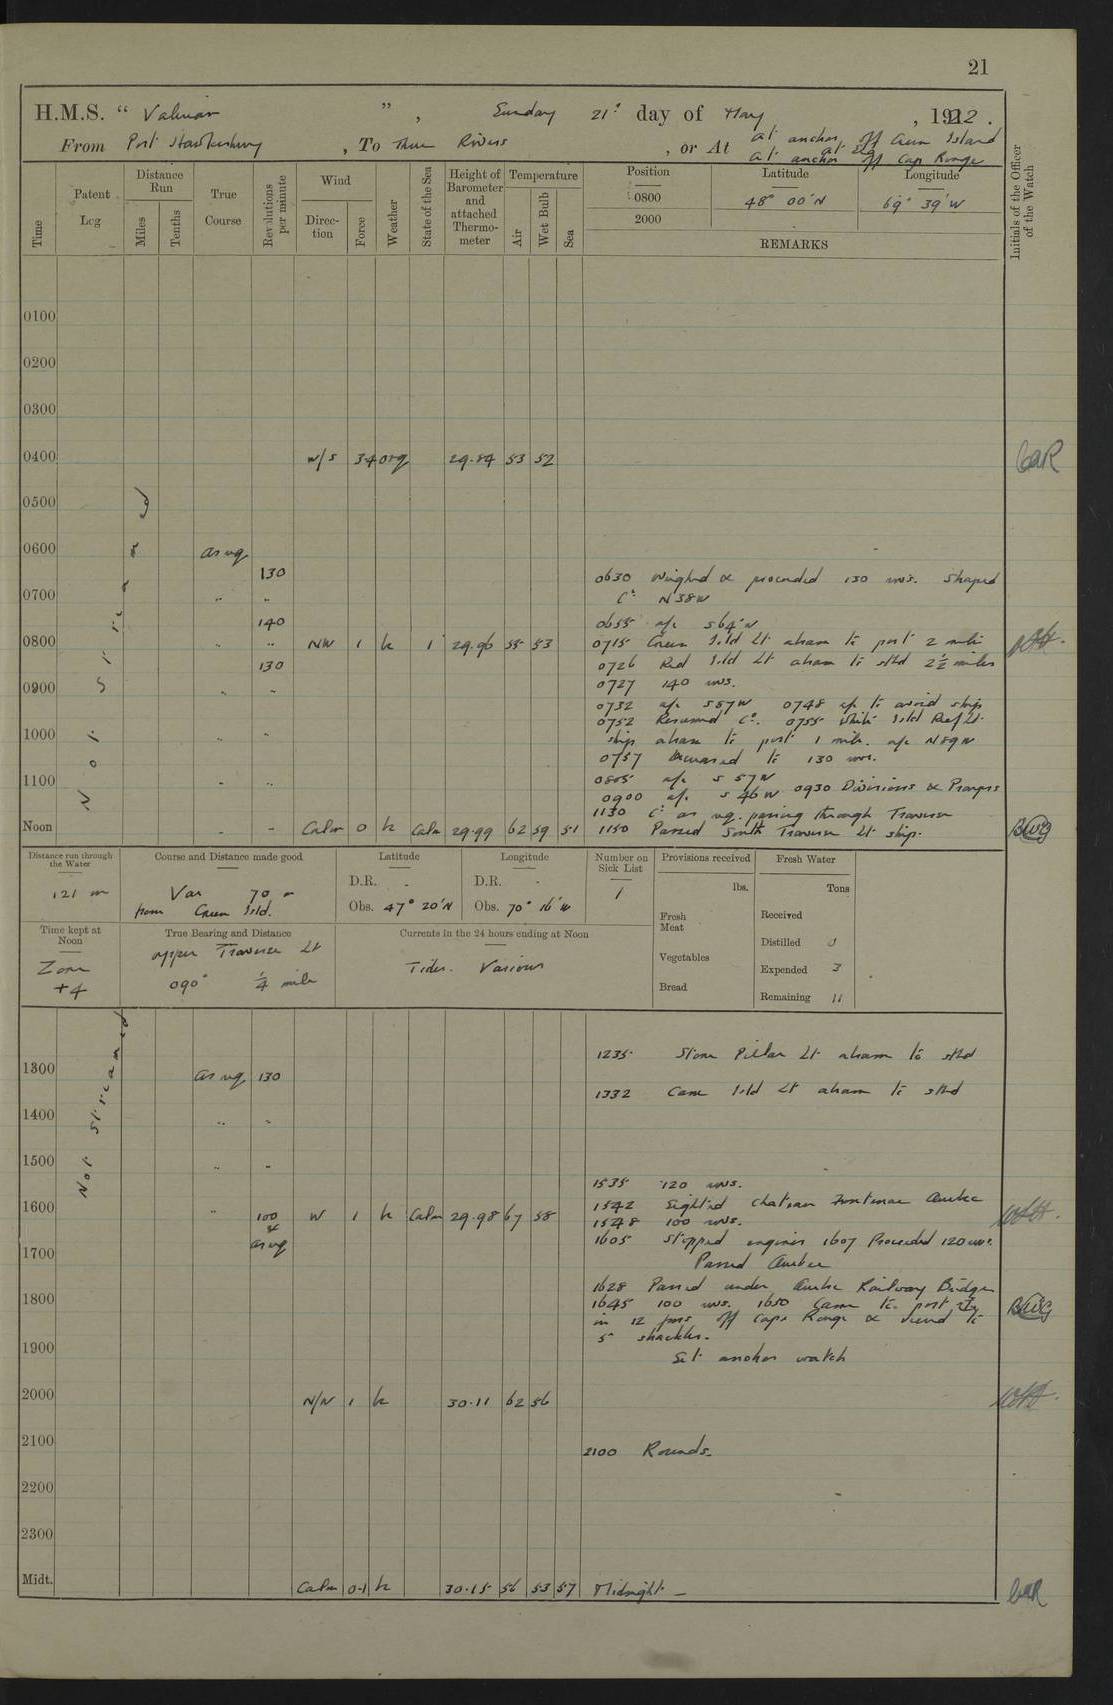 21
H.M.S. " Valerian " , Sunday 21st day of May , 1922 .
From Port Hawkesbury , To Three Rivers , or At at anchor off Green Island
at sea
at anchor off Cap Rouge
Time
Patent Log
Distance Run
Miles
Tenths
True Course
Revolutions per minute
Wind
Direction
Force
Weather
State of the Sea
Height of Barometer and attached Thermometer
Temperature
Air
Wet Bulb
Sea
Position Latitude Longitude
0800 48° 00' N 69° 39' W
2000
REMARKS
Initials of the Officer of the Watch
Not Streamed
0100
0200
0300
0400 W/S 3-4 org 29.84 53 52
0500
0600 as req
130
0630 Weighed & proceeded 130 revs. Shaped
Co N38W
0700 " "
140
0655 a/c S64W
0800 " " NW 1 b 1 29.96 55 53
0715 Green Isld Lt abeam to port 2 miles
130
0726 Red Isld Lt abeam to stbd 2½ miles
0727 140 revs.
0900 " "
0732 a/c S57W 0748 a/c to avoid ship
0752 Resumed Co. 0755 White Isld Reef Lt.
1000 " "
ship abeam to port 1 mile. a/c N89W
0757 Decreased to 130 revs.
1100 " "
0805 a/c S 57W
0900 a/c S 46W 0930 Divisions & Prayers
1130 Co as req. passing through Traverse
Noon " " Calm 0 b Calm 29.99 62 59 51
1150 Passed South Traverse Lt ship.
BWG
Distance run through the Water
121 m
Course and Distance made good
Var 70 m
from Green Isld.
Latitude
D.R. -
Obs. 47° 20' N
Longitude
D.R. -
Obs. 70° 16' W
Number on Sick List
1
Provisions received
lbs.
Fresh Meat
Vegetables
Bread
Fresh Water
Tons
Received
Distilled 0
Expended 3
Remaining 11
Time kept at Noon
Zone
+4
True Bearing and Distance
upper Traverse Lt
090° ¼ mile
Currents in the 24 hours ending at Noon
Tides. Various
Not Streamed
1235 Stone Pillar Lt abeam to stbd
1300 as req 130
1332 Crane Isld Lt abeam to stbd
1400 " "
1500 " "
1535 120 revs.
1542 Sighted Chateau Frontenac Quebec
1600 " 100 W 1 b Calm 29.98 67 58
& as req
1548 100 revs.
1605 Stopped engines 1607 Proceeded 120 revs.
1700
Passed Quebec
1628 Passed under Quebec Railway Bridge
1800
1645 100 revs. 1650 Came to port
in 12 fms off Cape Rouge & veered to
5 shackles.
BWG
1900
Set anchor watch
2000 N/W 1 b 30.11 62 56
2100
2100 Rounds.
2200
2300
Midt. Calm 0-1 b 30.15 56 53 57 Midnight -